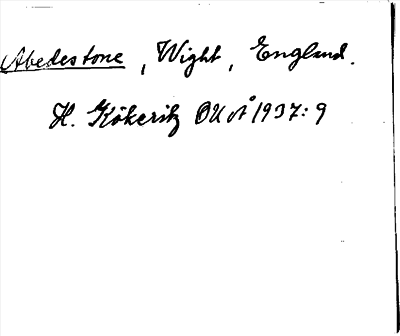 Abedestone, Wight, England.
H. Kökeritz OUÅ 1937: 9